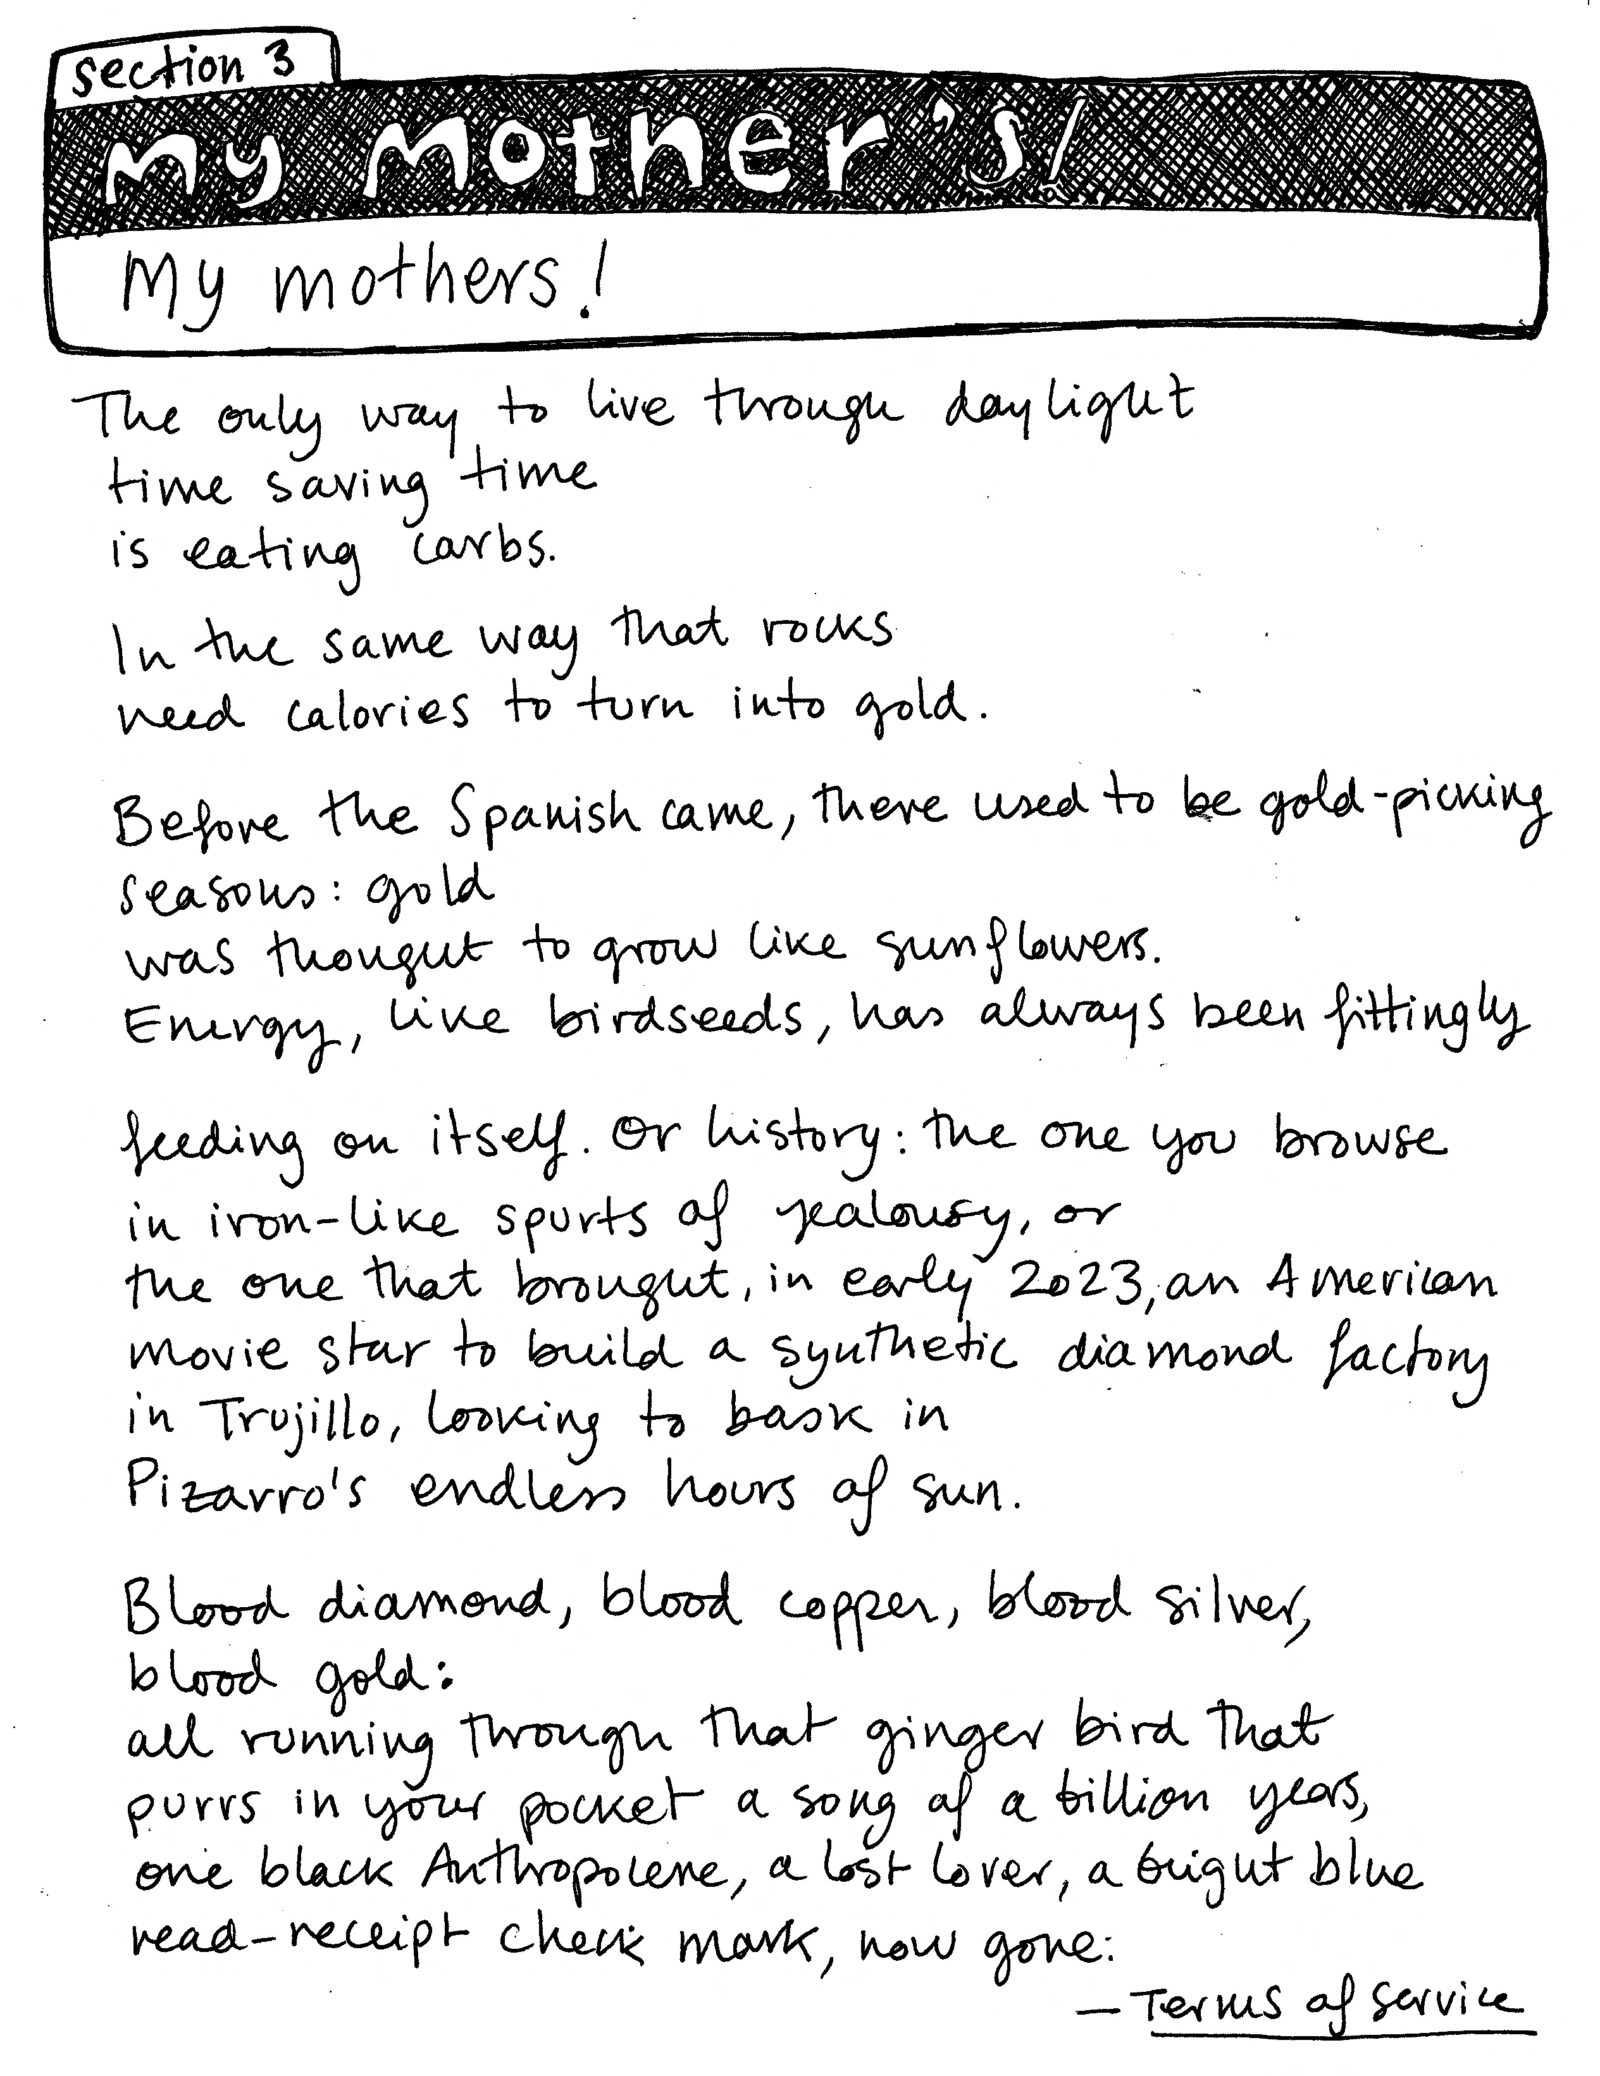 section 3
My mother's!
My mothers!
The only way to live through daylight
time saving time
is eating carbs.
In the same way that rocks
need calories to turn into gold.
Before the Spanish came, there used to be gold-picking
seasons: gold
was thought to grow like sunflowers.
Energy, like birdseeds, has always been fittingly
feeding on itself. Or history: the one you browse
in iron-like spurts of jealousy, or
the one that brought, in early 2023, an American
movie star to build a synthetic diamond factory
in Trujillo, looking to bask in
Pizarro's endless hours of sun.
Blood diamond, blood copper, blood silver,
blood gold:
all running through that ginger bird that
purrs in your pocket a song of a billion years,
one black Anthropocene, a lost lover, a bright blue
read-receipt check mark, now gone:
— Terms of service